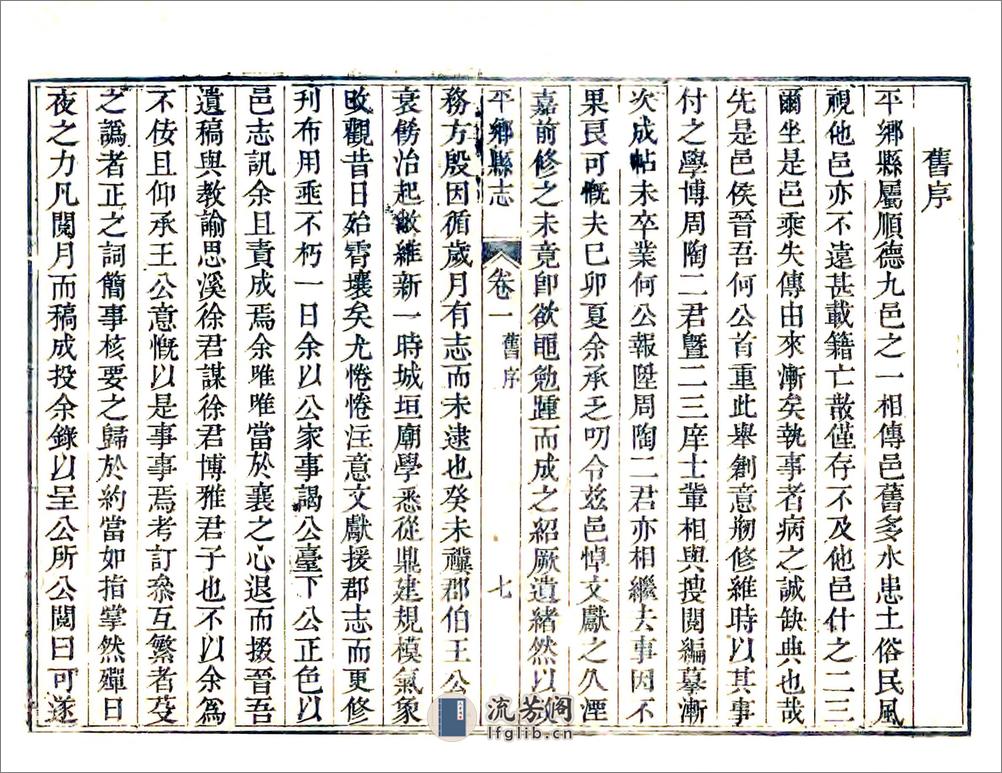 舊序
平鄉縣屬順德九邑之一相傳邑舊多水患土俗民風
視他邑亦不遠甚載籍亡散僅存不及他邑什之二三
爾坐是邑乘失傳由來漸矣執事者病之誠缺典也哉
先是邑侯晉吾何公首重此舉創意剏修維時以其事
付之學博周陶二君暨二三庠士輩相與搜閱編摹漸
次成帖未卒業何公報陞周陶二君亦相繼去事因不
果良可慨夫巳卯夏余承乏叨令兹邑悼文獻之久湮
嘉前修之未竟卽欲黽勉踵而成之紹厥遺緒然以
平鄉縣志
卷一
舊序
七
務方殷因循歲月有志而未逮也癸未襶郡伯王公
衰傍冶起敝維新一時城垣廟學悉從鼎建規模氣象
旼觀昔日始霄壤矣尤惓惓注意文獻援郡志而更修
刋布用垂不朽一日余以公家事謁公臺下公正色以
邑志訊余且責成焉余唯唯當於襄之心退而掇晉吾
遺稿與教諭思溪徐君謀徐君博雅君子也不以余爲
不佞且仰承王公意慨以是事事焉考訂叅互繁者芟
之譌者正之詞簡事核要之歸於約當如指掌然殫日
夜之力凡閱月而稿成投余錄以呈公所公閱曰可遂
流芳阁
lfglib.cn